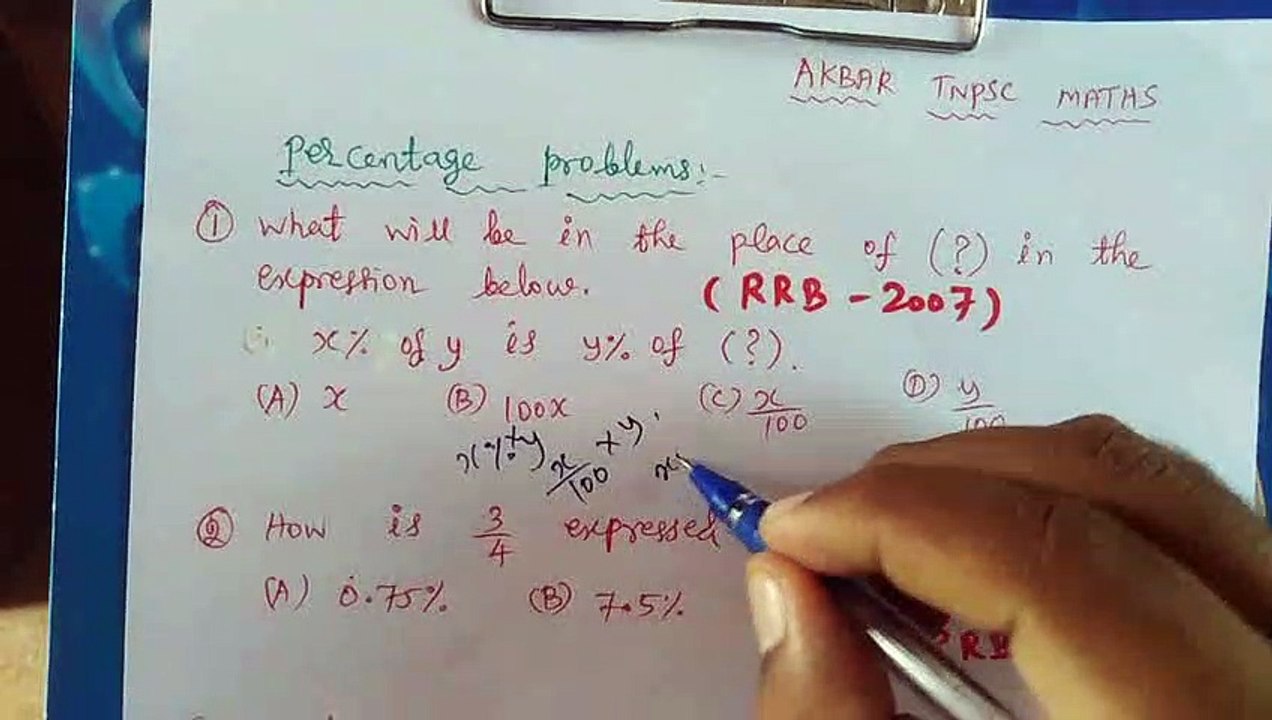 AKBAR TNPSC MATHS
Percentage problems:-
① What will be in the place of (?) in the
expression below. (RRB - 2007)
x% of y is y% of (?).
(A) x (B) 100x (C) x/100 (D) y/100
x% + y) x/100 × y
② How is 3/4 expressed
(A) 0.75% (B) 7.5%
RB